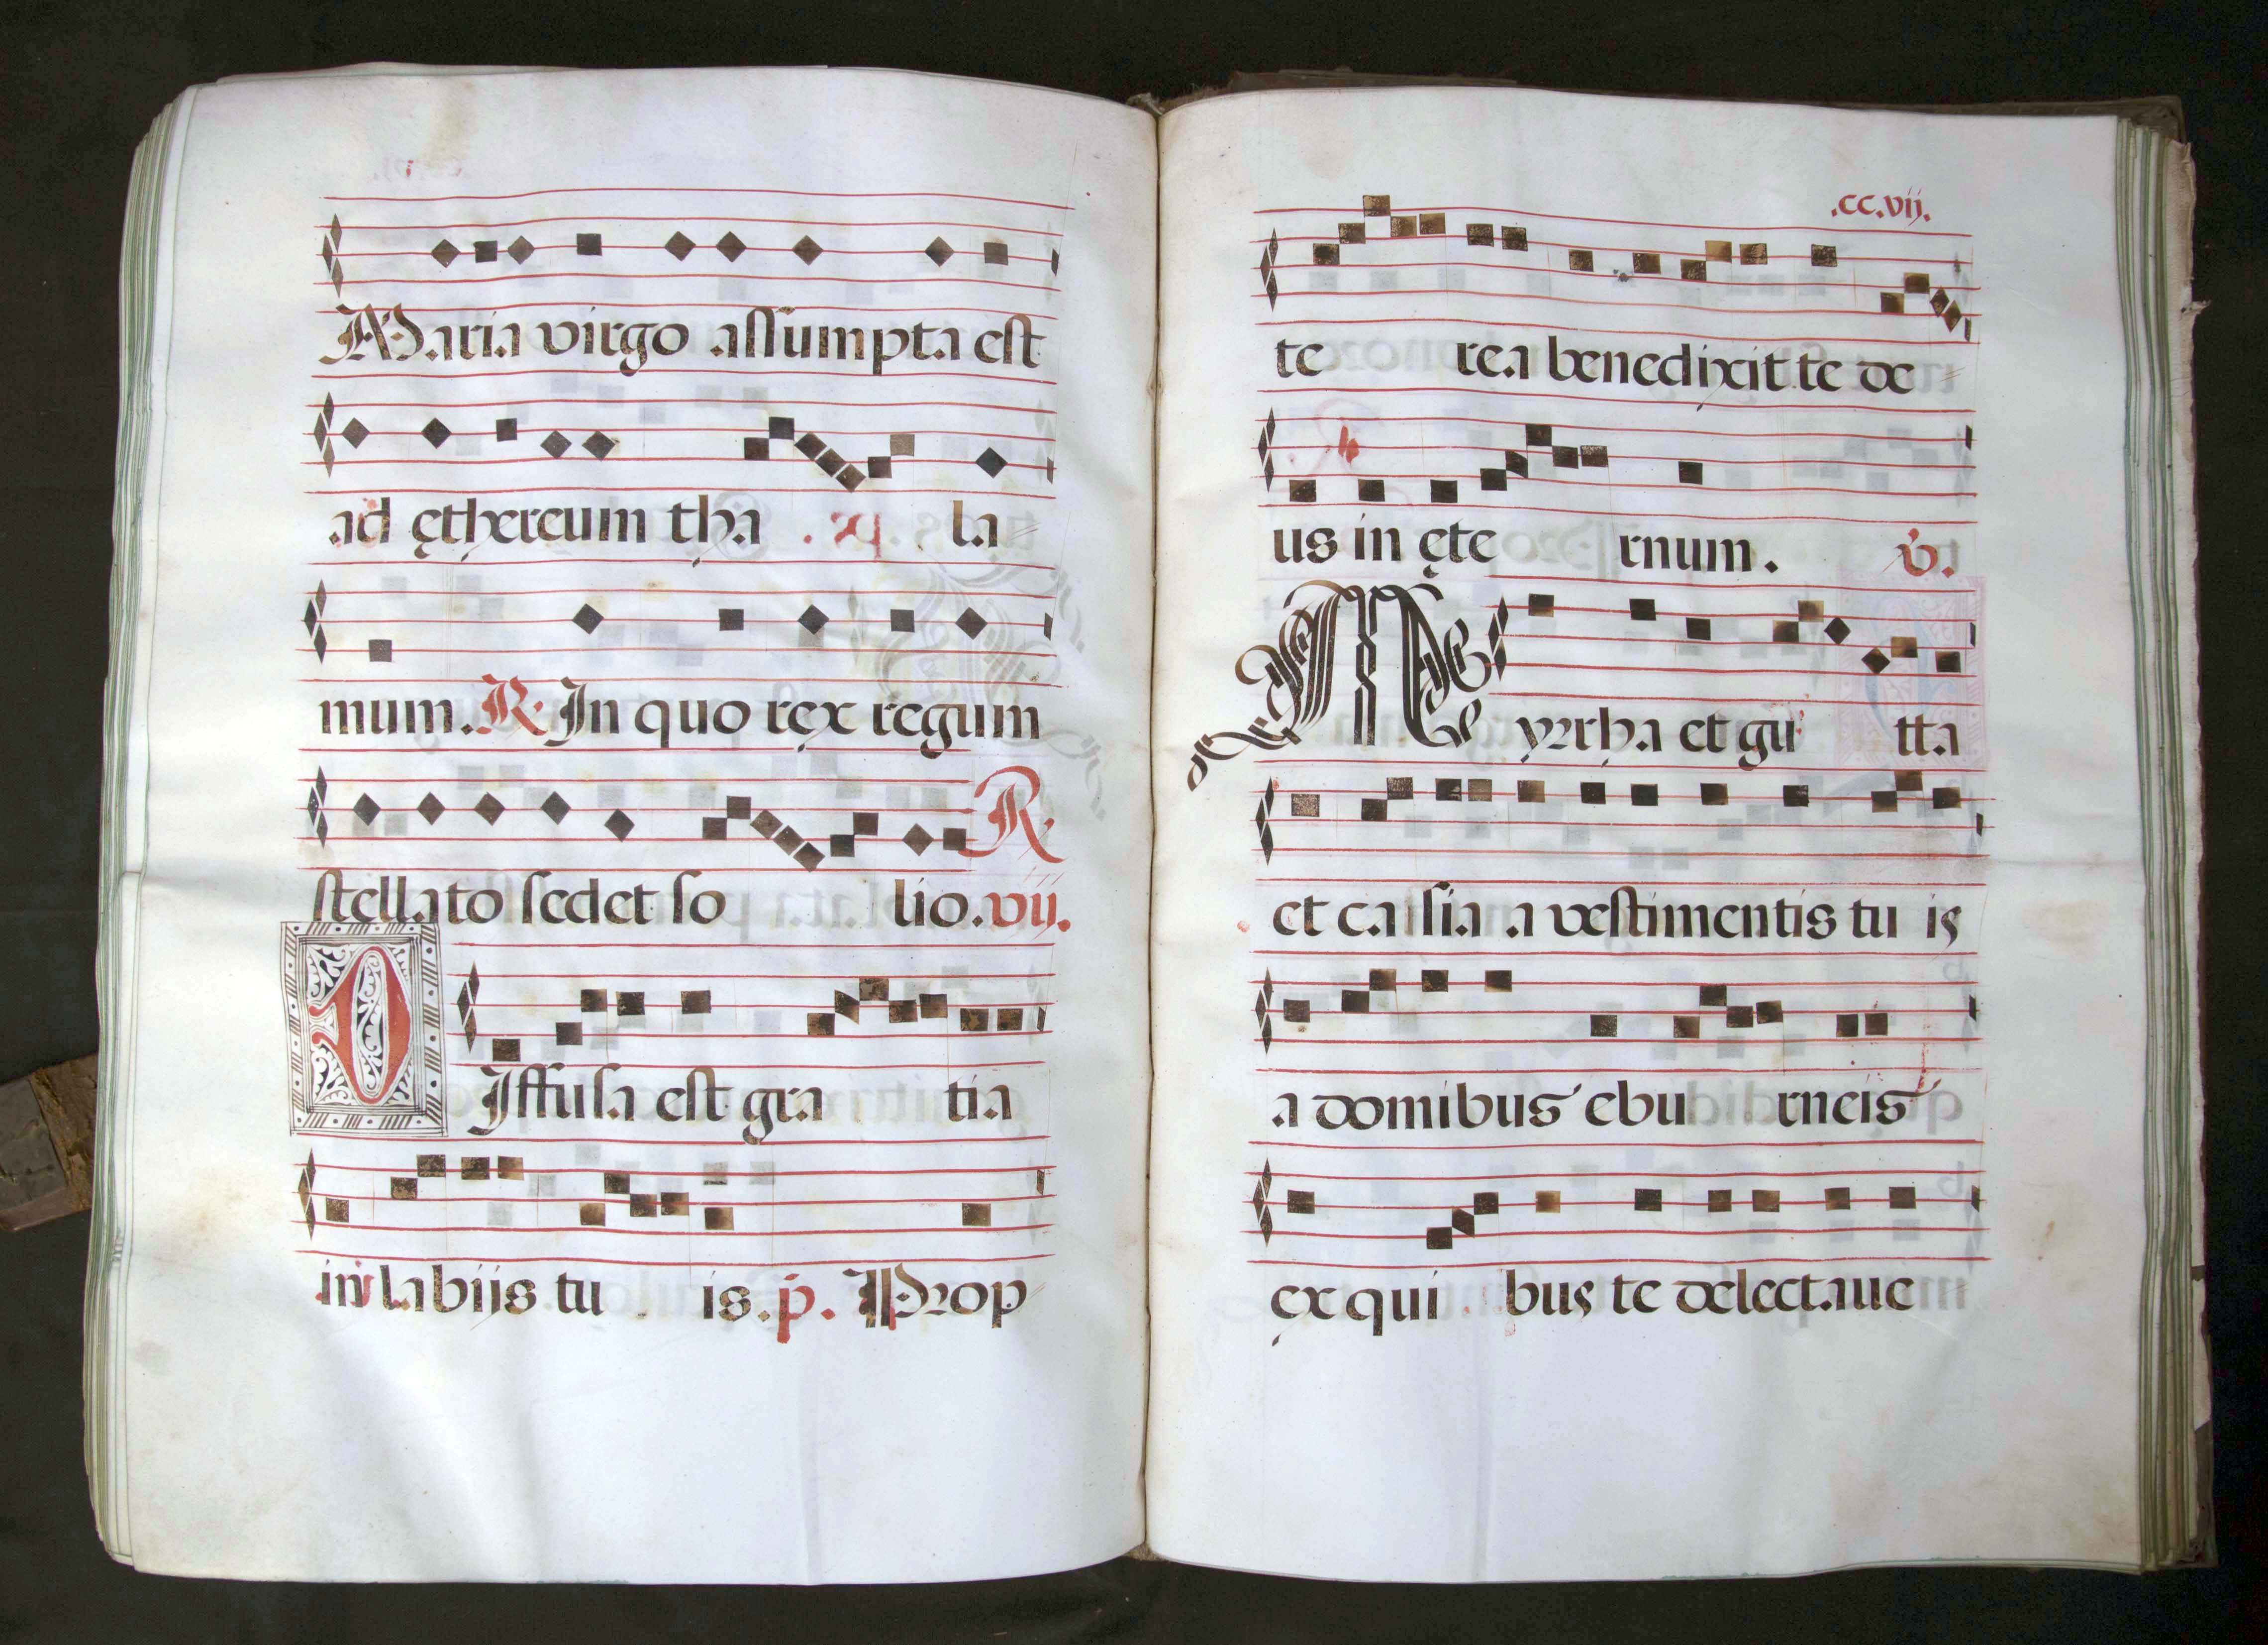 Maria virgo assumpta est
ad ęthereum tha la
mum. R. In quo rex regum
stellato sedet so lio. vij.
R.
DIffusa est gra tia
in labijs tu is. p. Prop
.cc.vij.
te rea benedixit te de
us in ęte rnum. v.
Myrrha et gu tta
et ca ssia a vestimentis tu is
a domibus ebu rneis
ex qui bus te delectaue